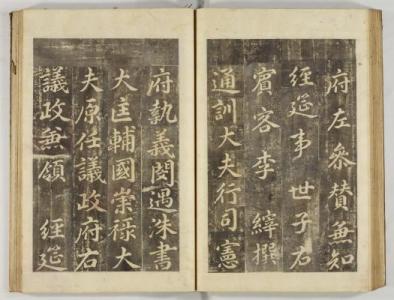 府左參賛兼知
經筵事 世子右
賓客李 繂撰
通訓大夫行司憲
府執義閔遇洙書
大匡輔國崇祿大
夫原任議政府右
議政兼領 經筵